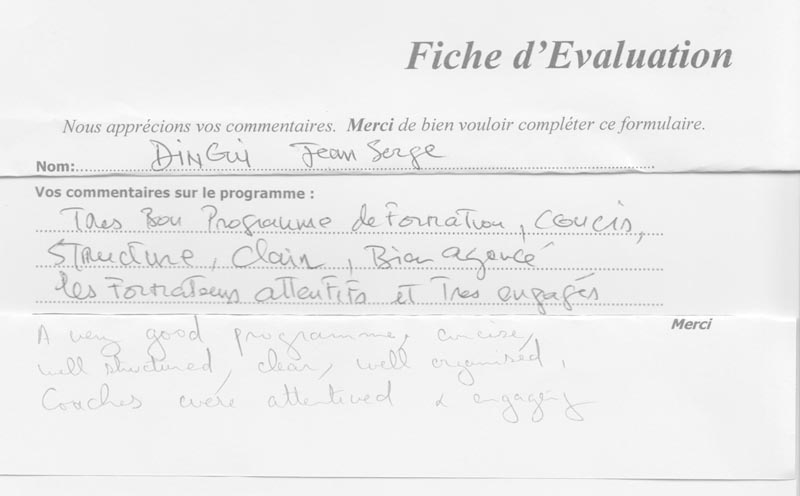 Fiche d'Evaluation
Nous apprécions vos commentaires. Merci de bien vouloir compléter ce formulaire.
Nom: DinGui Jean Serge
Vos commentaires sur le programme :
Tres Bon Programme de Formation, Concis,
Structure, Clair, Bien agencé
les Formateurs attentifs et Tres engagés
Merci
A very good programme, concise,
well structured, clear, well organised,
Coaches were attentived & engaging